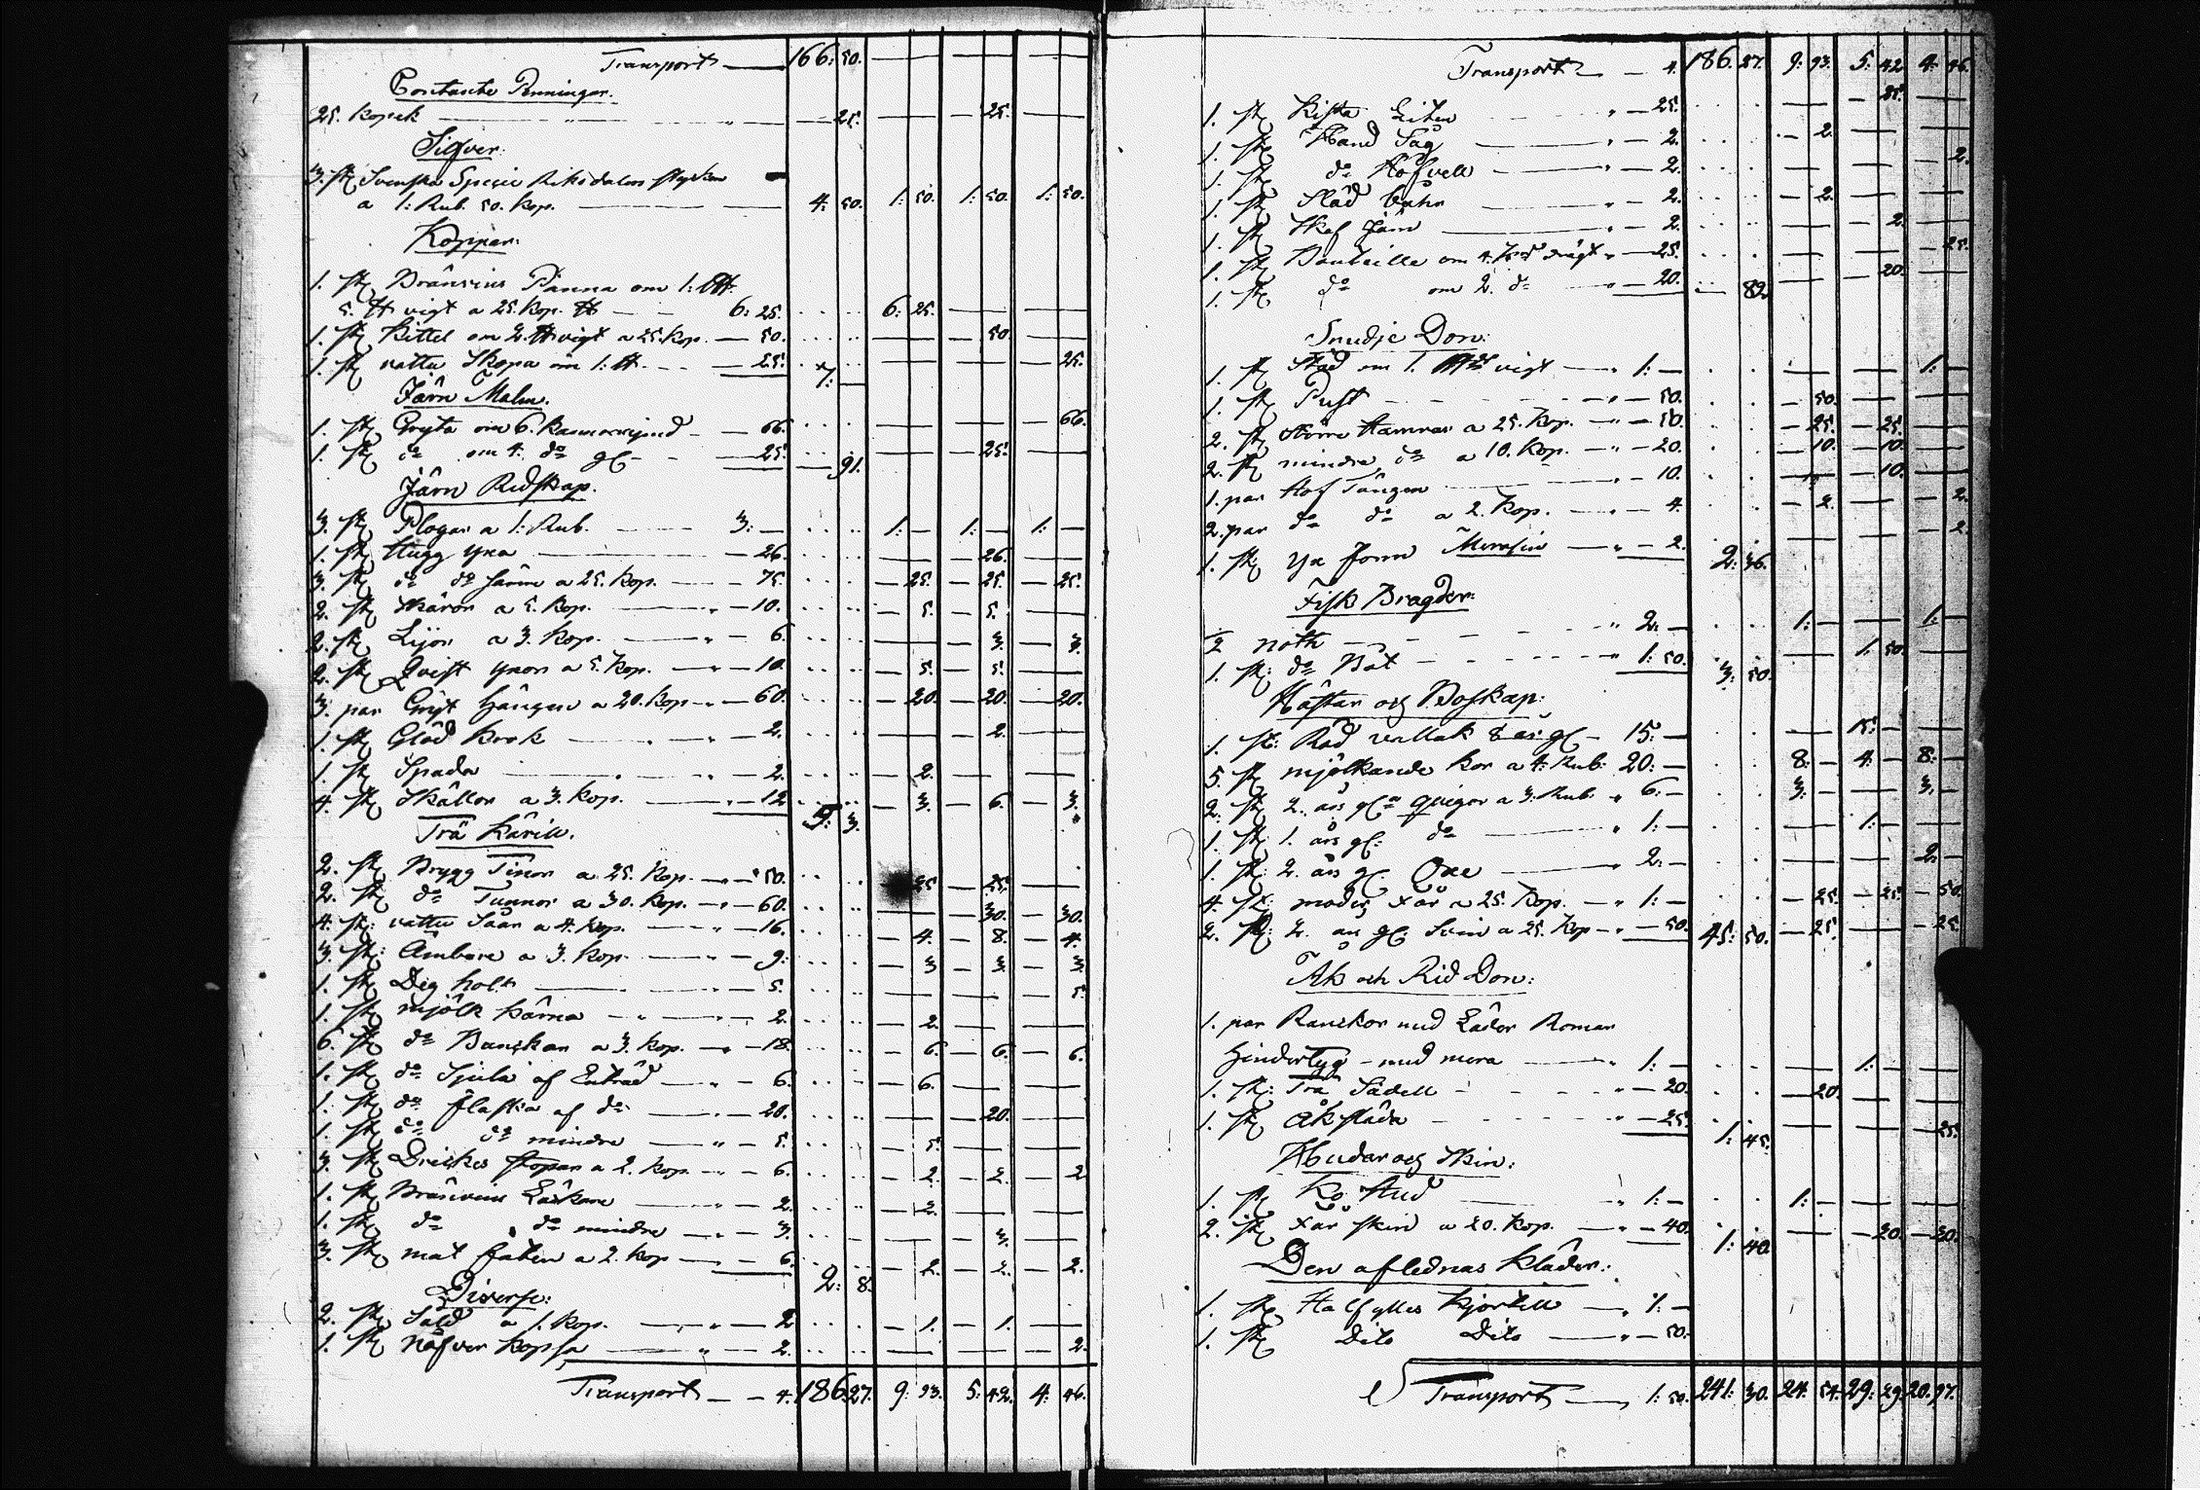 Transport — 166: 50. — — — — — —
Contante Penningar.
25. kopek — " — " — 25. — — — 25. — —
Silfver:
3. st Svenska Specie Riksdalers stycken
a 1: Rub. 50. kop. — — 4: 50. 1: 50. 1: 50. 1: 50.
Koppar:
1. st Bränvins Panna om 1: L℔.
5. ℔ vigt a 25. kop. ℔ — — 6: 25. 6: 25. — — — —
1. st kittel om 2. ℔ vigt a 25. kop. — 50. — — — 50. — —
1. st vattu Skopa om 1: ℔. — — 25. 7: — — — — — — 25.
Järn Malm.
1. st Gryta om 6. kannorrymd — — 66. — — — — — 66.
1. st do om 4. do gl — — 25. — 91. — — — 25. — —
Järn Redskap.
3. st Plogar a 1: Rub. — 3: — 1: — 1: — 1: —
1. st Hugg yxa — — 26. — — — 26. — —
3. st do do sämre a 25. kop. — — 75. — 25. — 25. — 25.
2. st Skäror a 5. kop. — " — 10. — 5. — 5. — —
2. st Lijor a 3. kop. — " — 6. — — — 3. — 3.
2. st Qvist yxor a 5. kop. — " — 10. — 5. — 5. — —
3. par Gryt hängen a 20. kop — " — 60. — 20. — 20. — 20.
1. st Glöd krok — " — 2. — — — 2. — —
1. st Spada — " — 2. — 2. — — — —
4. st Skällor a 3. kop. — " — 12. 5: 3. — 3. — 6. — 3.
Trä Käril.
2. st Brygg Tinor a 25. kop. — " — 50. — 25. — 25. — —
2. st do Tunnor a 30. kop. — " — 60. — — — 30. — 30.
4. st: vattu Såar a 4. kop. — " — 16. — 4. — 8. — 4.
3. st: Ämbare a 3. kop — " — 9. — 3 — 3. — 3.
1. st Deg holk — " — 5. — — — — — 5.
1. st mjölk kärna — " — 2. — 2. — — — —
6. st do Bunckar a 3. kop. — " — 18. — 6. — 6. — 6.
1. st do Spula af Enträd — " — 6. — 6. — — — —
1. st do flaska af do — " — 20. — — — 20. — —
1. st do do mindre — " — 5. — 5. — — — —
3. st Drickes stopar a 2. kop. — " — 6. — 2. — 2. — 2
1. st Bränvins Läckare — " — 2. — 2. — — — —
1. st do do mindre — " — 3. — — — 3. — —
3. st mat faten a 2. kop — " — 6. 2: 8. — 2. — 2. — 2.
Diverse:
2. st Såld a 1. kop. — " — 2 — 1. — 1. — —
1. st Näfver kopsa — " — 2. — — — — — 2.
Transport — — 4. 186. 27. 9: 93. 5: 42. 4: 46.
Transport — — 4. 186. 27. 9: 93. 5: 42 4: 46.
1. st Kista Liten " — 25. — — — 25. — —
1. st Hand Såg — " — 2. — 2. — — — —
1. st do Höfvell — " — 2. — — — — — 2.
1. st Släd — " — 2. — 2. — — — —
1. st Skaf Järn — " — 2. — — — 2. — —
1. st Bouteille om 4. drägt " — 25. — — — — — 25.
1. st do om 2. do " — 20. — 82. — — — 20. — —
Smidje Don:
1. st Städ om 1. vigt — " 1: — — — — — 1: —
1. st Pust — — — " — 50. — 50. — — — —
2. st större Hamrar a 25. kop. — " — 50. — 25. — 25. — —
2. st mindre do a 10. kop. — " — 20. — 10. — 10. — —
1. par Hof Tänger — " — 10. — — — 10. — —
2. par do do a 2. kop. — " — 4. — 2. — — — 2.
1. st yx Form — " — 2. 2: 36. — — — — — 2.
Fisk Bragder.
½ noth — — — " 2: — 1: — — — 1: —
1. st: do Båt — — — " 1: 50. 3: 50. — — 1: 50. — —
Hästar och Boskap:
1. st: Röd vallak 8 års gl — 15: — — — 15: — — —
5 st mjölkande kor a 4: Rub: 20: — 8: — 4: — 8: —
2. st 2. års gla Qvigor a 3: Rub. " 6: — 3: — — — 3: —
1. st: 1. års gl: do — " 1: — — — 1: — — —
1. st: 2. års gl. Oxe — " 2: — — — — — 2. —
4. st: moder Får a 25. kop. — " 1: — — 25. — 25. — 50.
2. st: 2. års gl: Svin a 25. kop — " — 50. 45: 50. — 25. — — — 25.
Åk och Rid Don:
1. par Ranckor med Läder Remar
hindertyg — med mera — " 1: — — — 1: — — —
1. st: Trä Sadell — — — " — 20. — 20. — — — —
1. st Åk släda — — " — 25. 1: 45. — — — — — 25.
Hudar och Skin:
1. st Ko Hud — " 1: — 1: — — — — —
2. st Får skin a 20. kop. — " — 40. 1: 40. — — — 20. — 20.
Den aflednas kläder:
1. st Halfylles kjortell — " 1: —
1. st Dito Dito — " — 50.
Transport — 1: 50. 241: 30. 24: 54. 29: 29: 20. 97.